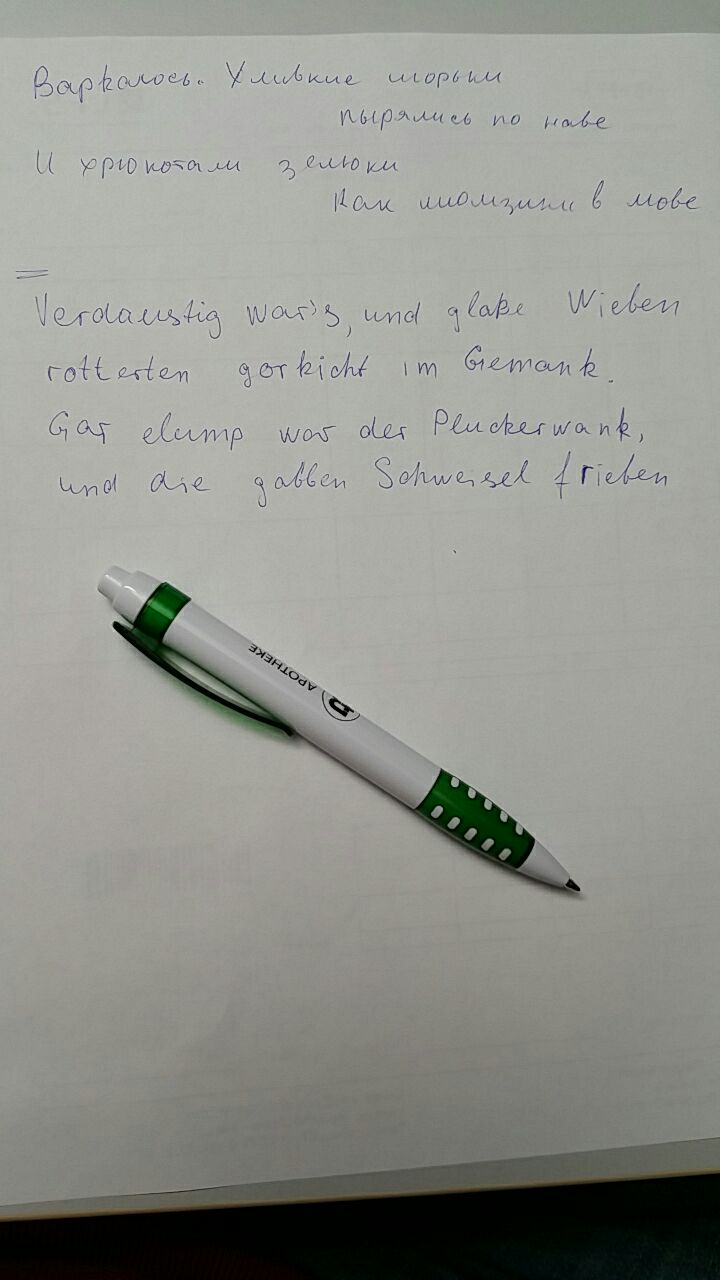 Варкалось. Хливкие шорьки
пырялись по наве
И хрюкотали зелюки
Как мюмзики в мове
=
Verdaustig war's, und glaße Wieben
rotterten gorkicht im Gemank.
Gar elump war der Pluckerwank,
und die gabben Schweisel frieben
APOTHEKE